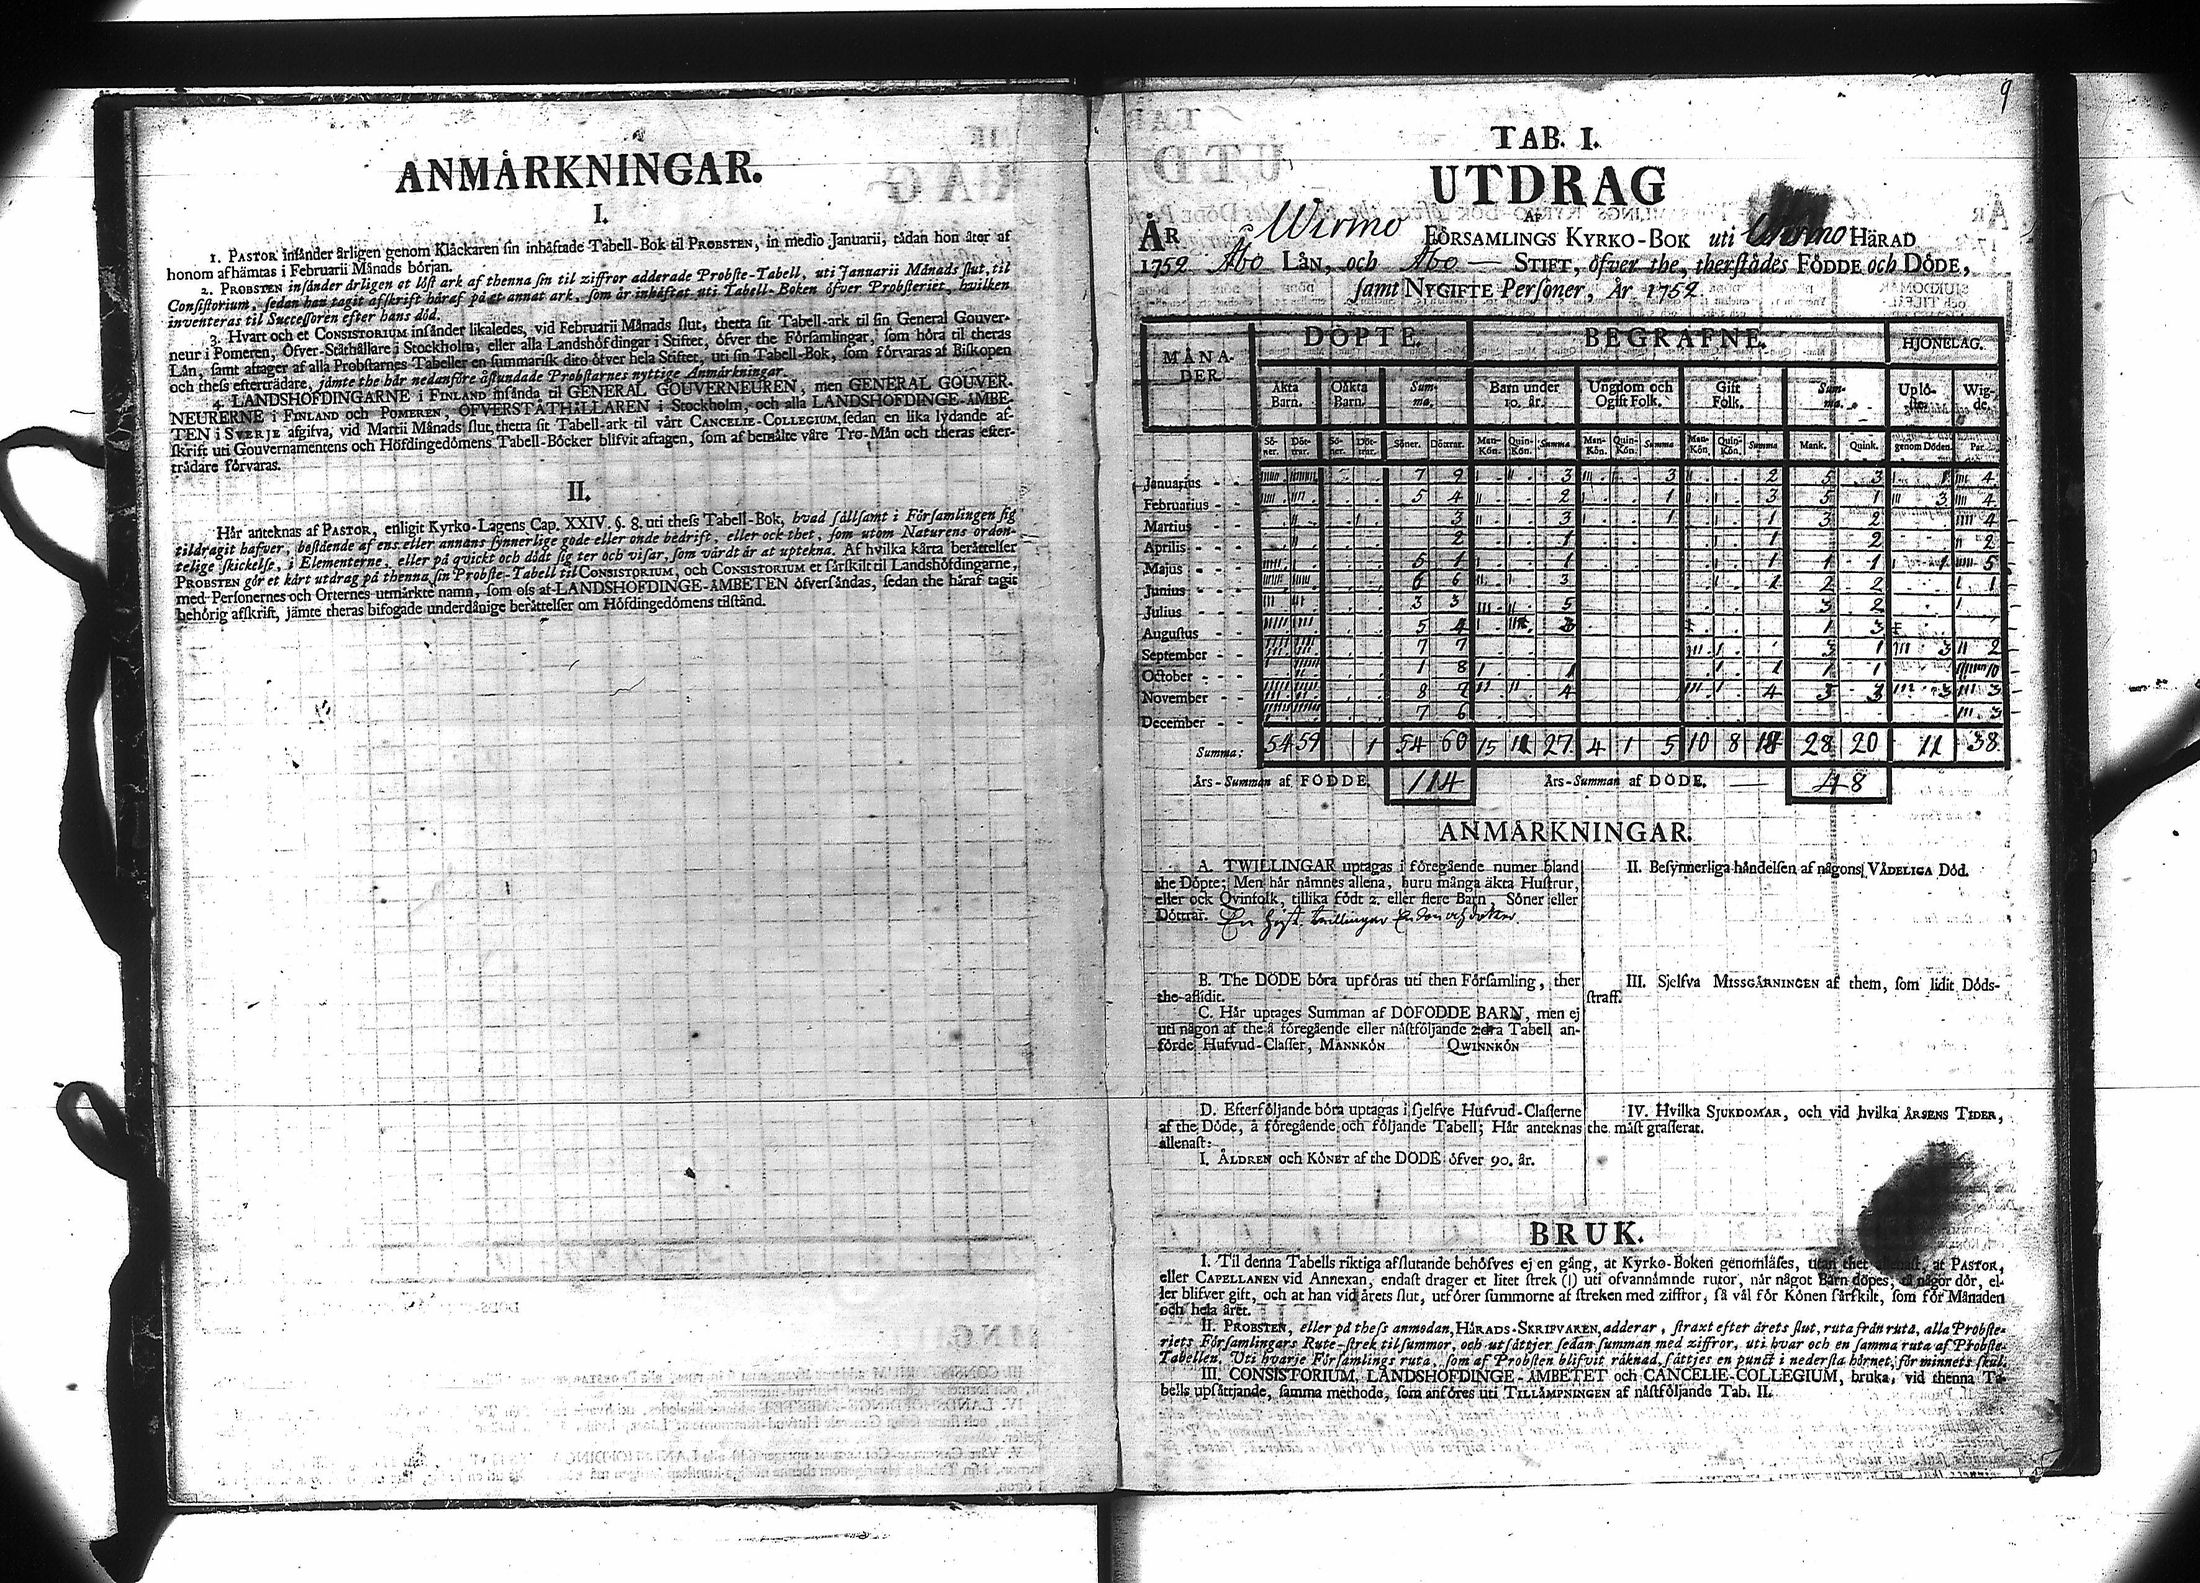 ANMÅRKNINGAR.
I.
1. PASTOR insånder årligen genom Klåckaren sin inhåftade Tabell-Bok til PROBSTEN, in medio Januarii, sådan hon åter af
honom afhämtas i Februarii Månads början.
2. PROBSTEN insånder årligen et löst ark af thenna sin til ziffror adderade Probste-Tabell, uti Januarii Månads slut, til
Consistorium, sedan han tagit afskrift håraf på et annat ark, som är inhåftat uti Tabell-Boken öfver Probsteriet, hvilken
inventeras til Successoren efter hans död.
3. Hvart och et CONSISTORIUM insånder likaledes, vid Februarii Månads slut, thetta sit Tabell-ark til sin General Gouver-
neur i Pomeren, Öfver-Ståthållare i Stockholm, eller alla Landshöfdingar i Stiftet, öfver the Församlingar, som höra til theras
Lån, samt aftager af alla Probstarnes Tabeller en summarisk dito öfver hela Stiftet, uti sin Tabell-Bok, som förvaras af Biskopen
och thess efterträdare, jämte the hår nedanföre åstundade Probstarnes nyttige Anmärkningar.
4. LANDSHÖFDINGARNE i FINLAND insånda til GENERAL GOUVERNEUREN, men GENERAL GOUVER-
NEURERNE i FINLAND och POMEREN, ÖFVERSTÅTHÅLLAREN i Stockholm, och alla LANDSHÖFDINGE-ÅMBE-
TEN i SVERJE afgifva, vid Martii Månads slut, thetta sit Tabell-ark til vårt CANCELIE-COLLEGIUM, sedan en lika lydande af-
skrift uti Gouvernamentens och Höfdingedömens Tabell-Böcker blifvit aftagen, som af bemålte våre Tro-Mån och theras efter-
trådare förvaras.
II.
Hår anteknas af PASTOR, enligit Kyrko-Lagens Cap. XXIV. §. 8. uti thess Tabell-Bok, hvad sållsamt i Församlingen sig
tildragit hafver, bestående af ens eller annans synnerlige gode eller onde bedrift, eller ock thet, som utom Naturens orden-
telige skickelse, i Elementerne, eller på quickt och dödt sig ter och visar, som vårdt år at uptekna. Af hvilka kårta beråttelser
PROBSTEN gör et kårt utdrag på thenna sin Probste-Tabell til CONSISTORIUM, och CONSISTORIUM et sårskilt til Landshöfdingarne,
med Personernes och Orternes utmärkte namn, som oss af LANDSHÖFDINGE-ÅMBETEN öfversåndas, sedan the håraf tagit
behörig afskrift, jämte theras bifogade underdånige beråttelser om Höfdingedömens tilstånd.
9
TAB. I.
UTDRAG
AF
ÅR Wirmo FÖRSAMLINGS KYRKO-BOK uti Wirmo HÄRAD
1752 Åbo LÅN, och Åbo — STIFT, öfver the, therstådes FÖDDE och DÖDE,
samt NYGIFTE Personer, År 1752.
MÅNA-DER DÖPTE. BEGRAFNE. HJONELAG.
Äkta Barn. Oäkta Barn. Summa. Barn under 10. år. Ungdom och Ogift Folk. Gift Folk. Summa. Uplö-ste Wig-de.
Sö-ner. Döt-trar. Sö-ner. Döt-trar. Söner. Döttrar. Man-Kön. Quin-Kön. Summa Man-Kön. Quin-Kön. Summa Man-Kön. Quin-Kön. Summa Mank. Quink. genom Döden. Par.
Januarius - - 7 9 3 3 2 5 3 1 4
Februarius - - 5 4 2 1 3 5 1 3 4
Martius - - 3 3 1 1 3 2 4
Aprilis - - 2 1 1 2 2
Majus - - 5 1 1 1 1 1 1 5
Junius - - 6 6 3 1 2 2 1
Julius - - 3 3 5 3 2
Augustus - - 5 4 1 3
September - - 7 7 3 1 3 2
October - - 1 8 1 1 1 1 10
November - - 8 7 4 4 3 3 3
December - - 7 6 3
Summa: 54 59 1 54 60 15 27 4 1 5 10 8 18 28 20 11 38
Års-Summan af FÖDDE. 114 Års-Summan af DÖDE. — 48
ANMÅRKNINGAR.
A. TWILLINGAR uptagas i föregående numer bland
the Döpte; Men hår nåmnes allena, huru många äkta Hustrur,
eller ock Qvinfolk, tillika födt 2. eller flere Barn, Söner eller
Döttrar. En hust. twillingar En son och dotter.
B. The DÖDE böra upföras uti then Församling, ther
the aflidit.
C. Hår uptages Summan af DÖFÖDDE BARN, men ej
uti någon af the å föregående eller nåstföljande 2:dra Tabell an-
förde Hufvud-Classer, MANNKÖN QWINNKÖN
D. Efterföljande böra uptagas i sjelfve Hufvud-Classerne
af the Döde, å föregående och följande Tabell; Hår anteknas
allenast:
I. ÅLDREN och KÖNET af the DÖDE öfver 90. år.
II. Besynnerliga håndelsen af någons VÅDELIGA Död.
III. Sjelfva MISSGÅRNINGEN af them, som lidit Döds-
straff.
IV. Hvilka SJUKDOMAR, och vid hvilka ÅRSENS TIDER,
the måst grasserat.
BRUK.
I. Til denna Tabells riktiga afslutande behöfves ej en gång, at Kyrko-Boken genomläses, utan thet allenast, at PASTOR,
eller CAPELLANEN vid Annexan, endast drager et litet strek (I) uti ofvannåmnde rutor, når något Barn döpes, så någor dör, el-
ler blifver gift, och at han vid årets slut, utförer summorne af streken med ziffror, så vål för Könen sårskilt, som för Månaden
och hela året.
II. PROBSTEN, eller på thess anmodan, HÅRADS-SKRIFVAREN, adderar, straxt efter årets slut, ruta från ruta, alla Probste-
riets Församlingars Rute-strek til summor, och utsåttjer sedan summan med ziffror, uti hvar och en samma ruta af Probste-
Tabellen. Uti hvarje Församlings ruta, som af Probsten blifvit råknad, såttjes en punct i nedersta hörnet, för minnets skul.
III. CONSISTORIUM, LANDSHÖFDINGE-ÅMBETET och CANCELIE-COLLEGIUM, bruka, vid thenna Ta-
bells upsåttjande, samma methode, som anföres uti TILLÅMPNINGEN af nåstföljande Tab. II.